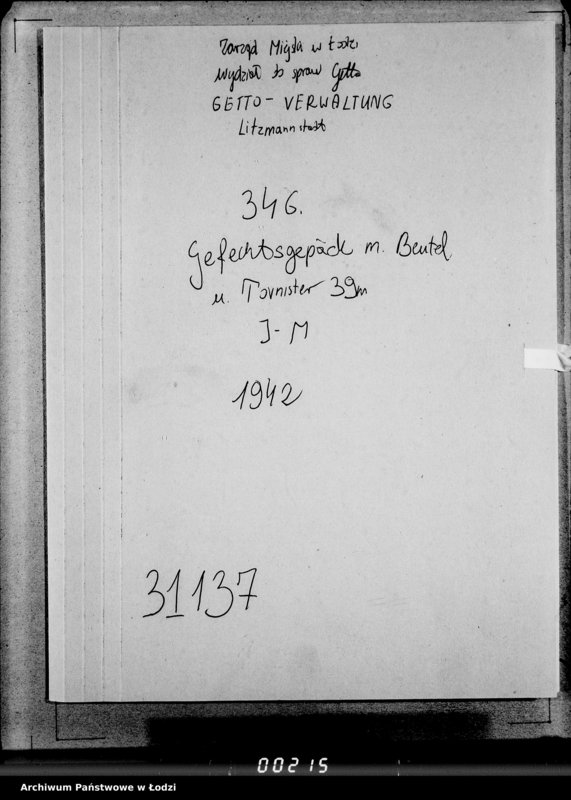 Zarząd Miejski w Łodzi
Wydział do spraw Getta
GETTO - VERWALTUNG
Litzmannstadt
346.
Gefechtsgepäck m. Beutel
u. Tornister 39m
J - M
1942
31137
00215
Archiwum Państwowe w Łodzi